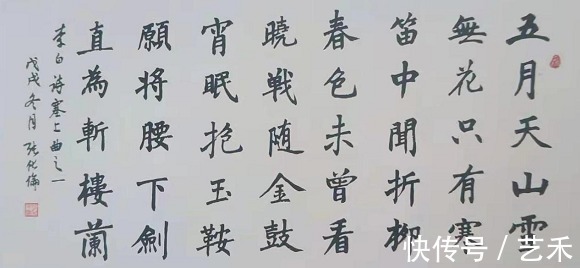 五月天山雪
無花只有寒
笛中聞折柳
春色未曾看
曉戦随金鼓
宵眠抱玉鞍
願將腰下劍
直為斬樓蘭
李白诗塞上曲之一
戊戌冬月 张化倫
快传号 / 艺禾